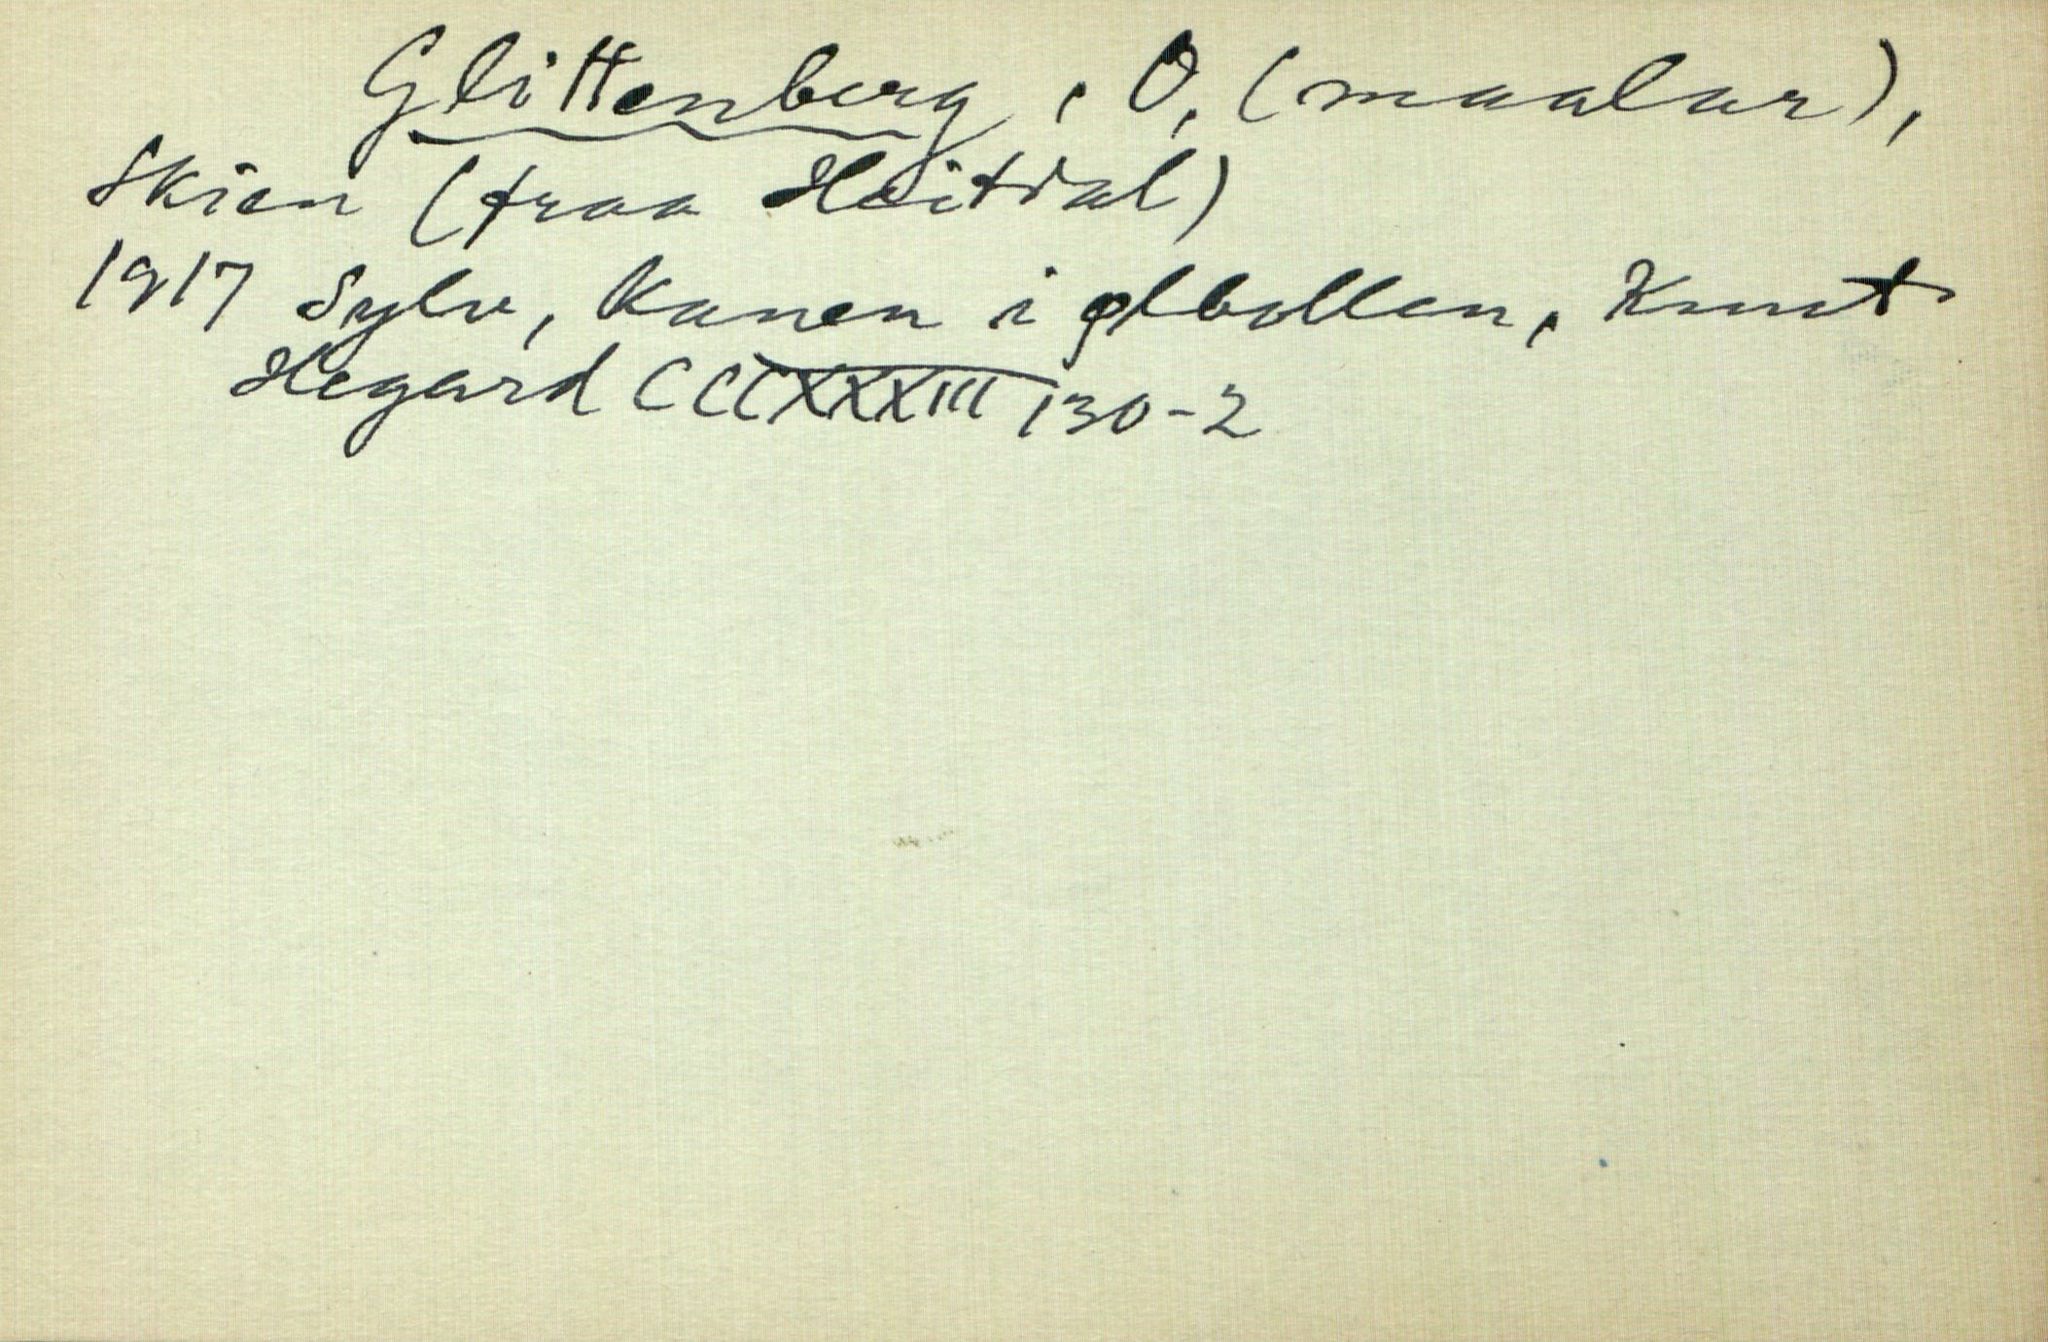 Glittenberg, O, (maalar),
Skien (fraa Heitdal)
1917 Sylv, Kanen i ølbollen, Knut
Hegard CCCXXXIII 130-2